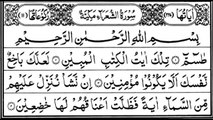 اٰيَاتُهَا ٢٢٧ سُوْرَةُ الشُّعَرَاءِ مَكِّيَّةٌ رُكُوْعَاتُهَا ١١
بِسْمِ اللّٰهِ الرَّحْمٰنِ الرَّحِيْمِ
طٰسٓمّٓ ۝ تِلْكَ اٰيٰتُ الْكِتٰبِ الْمُبِيْنِ ۝ لَعَلَّكَ بَاخِعٌ
نَّفْسَكَ اَلَّا يَكُوْنُوْا مُؤْمِنِيْنَ ۝ اِنْ نَّشَاْ نُنَزِّلْ عَلَيْهِمْ
مِّنَ السَّمَآءِ اٰيَةً فَظَلَّتْ اَعْنَاقُهُمْ لَهَا خٰضِعِيْنَ ۝